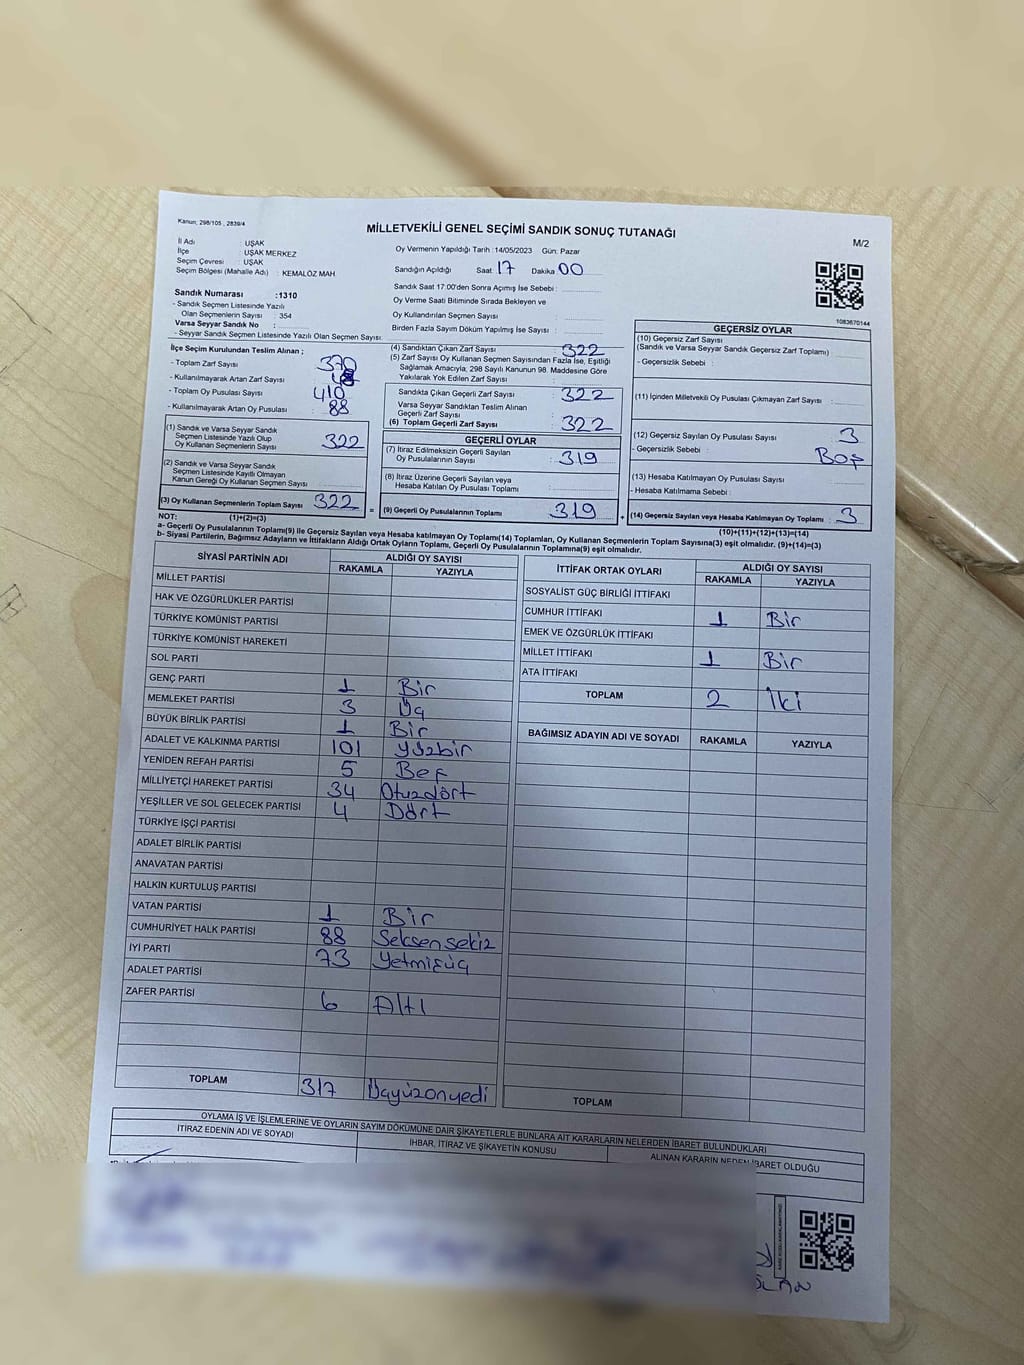 Kanun: 298/105 , 2839/4
MİLLETVEKİLİ GENEL SEÇİMİ SANDIK SONUÇ TUTANAĞI
M/2
İl Adı : UŞAK
İlçe : UŞAK MERKEZ
Seçim Çevresi : UŞAK
Seçim Bölgesi (Mahalle Adı) : KEMALÖZ MAH
Oy Vermenin Yapıldığı Tarih :14/05/2023 Gün: Pazar
Sandığın Açıldığı Saat 17 Dakika 00
Sandık Saat 17:00'den Sonra Açımış İse Sebebi :
Oy Verme Saati Bitiminde Sırada Bekleyen ve
Oy Kullandırılan Seçmen Sayısı :
Birden Fazla Sayım Döküm Yapılmış İse Sayısı :
1083670144
Sandık Numarası :1310
- Sandık Seçmen Listesinde Yazılı
Olan Seçmenlerin Sayısı : 354
Varsa Seyyar Sandık No :
- Seyyar Sandık Seçmen Listesinde Yazılı Olan Seçmen Sayısı:
İlçe Seçim Kurulundan Teslim Alınan ;
- Toplam Zarf Sayısı : 370
- Kullanılmayarak Artan Zarf Sayısı
- Toplam Oy Pusulası Sayısı : 410
- Kullanılmayarak Artan Oy Pusulası : 88
(1) Sandık ve Varsa Seyyar Sandık
Seçmen Listesinde Yazılı Olup
Oy Kullanan Seçmenlerin Sayısı : 322
(2) Sandık ve Varsa Seyyar Sandık
Seçmen Listesinde Kayıtlı Olmayan
Kanun Gereği Oy Kullanan Seçmen Sayısı :
(3) Oy Kullanan Seçmenlerin Toplam Sayısı : 322
(1)+(2)=(3)
(4) Sandıktan Çıkan Zarf Sayısı : 322
(5) Zarf Sayısı Oy Kullanan Seçmen Sayısından Fazla İse, Eşitliği
Sağlamak Amacıyla; 298 Sayılı Kanunun 98. Maddesine Göre
Yakılarak Yok Edilen Zarf Sayısı :
Sandıkta Çıkan Geçerli Zarf Sayısı : 322
Varsa Seyyar Sandıktan Teslim Alınan
Geçerli Zarf Sayısı :
(6) Toplam Geçerli Zarf Sayısı : 322
GEÇERLİ OYLAR
(7) İtiraz Edilmeksizin Geçerli Sayılan
Oy Pusulalarının Sayısı : 319
(8) İtiraz Üzerine Geçerli Sayılan veya
Hesaba Katılan Oy Pusulası Toplamı :
= (9) Geçerli Oy Pusulalarının Toplamı : 319 +
GEÇERSİZ OYLAR
(10) Geçersiz Zarf Sayısı
(Sandık ve Varsa Seyyar Sandık Geçersiz Zarf Toplamı) :
- Geçersizlik Sebebi :
(11) İçinden Milletvekili Oy Pusulası Çıkmayan Zarf Sayısı :
(12) Geçersiz Sayılan Oy Pusulası Sayısı : 3
- Geçersizlik Sebebi : Boş
(13) Hesaba Katılmayan Oy Pusulası Sayısı :
- Hesaba Katılmama Sebebi :
(14) Geçersiz Sayılan veya Hesaba Katılmayan Oy Toplamı : 3
(10)+(11)+(12)+(13)=(14)
NOT:
a- Geçerli Oy Pusulalarının Toplamı(9) ile Geçersiz Sayılan veya Hesaba katılmayan Oy Toplamı(14) Toplamları, Oy Kullanan Seçmenlerin Toplam Sayısına(3) eşit olmalıdır. (9)+(14)=(3)
b- Siyasi Partilerin, Bağımsız Adayların ve İttifakların Aldığı Ortak Oyların Toplamı, Geçerli Oy Pusulalarının Toplamına(9) eşit olmalıdır.
SİYASİ PARTİNİN ADI ALDIĞI OY SAYISI
RAKAMLA YAZIYLA
MİLLET PARTİSİ
HAK VE ÖZGÜRLÜKLER PARTİSİ
TÜRKİYE KOMÜNİST PARTİSİ
TÜRKİYE KOMÜNİST HAREKETİ
SOL PARTİ
GENÇ PARTİ 1 Bir
MEMLEKET PARTİSİ 3 Üç
BÜYÜK BİRLİK PARTİSİ 1 Bir
ADALET VE KALKINMA PARTİSİ 101 Yüzbir
YENİDEN REFAH PARTİSİ 5 Beş
MİLLİYETÇİ HAREKET PARTİSİ 34 Otuzdört
YEŞİLLER VE SOL GELECEK PARTİSİ 4 Dört
TÜRKİYE İŞÇİ PARTİSİ
ADALET BİRLİK PARTİSİ
ANAVATAN PARTİSİ
HALKIN KURTULUŞ PARTİSİ
VATAN PARTİSİ 1 Bir
CUMHURİYET HALK PARTİSİ 88 Seksensekiz
İYİ PARTİ 73 Yetmişüç
ADALET PARTİSİ
ZAFER PARTİSİ 6 Altı
TOPLAM 317 Üçyüzonyedi
İTTİFAK ORTAK OYLARI ALDIĞI OY SAYISI
RAKAMLA YAZIYLA
SOSYALİST GÜÇ BİRLİĞİ İTTİFAKI
CUMHUR İTTİFAKI 1 Bir
EMEK VE ÖZGÜRLÜK İTTİFAKI
MİLLET İTTİFAKI 1 Bir
ATA İTTİFAKI
TOPLAM 2 İki
BAĞIMSIZ ADAYIN ADI VE SOYADI RAKAMLA YAZIYLA
TOPLAM
OYLAMA İŞ VE İŞLEMLERİNE VE OYLARIN SAYIM DÖKÜMÜNE DAİR ŞİKAYETLERLE BUNLARA AİT KARARLARIN NELERDEN İBARET BULUNDUKLARI
İTİRAZ EDENİN ADI VE SOYADI
İHBAR, İTİRAZ VE ŞİKAYETİN KONUSU
ALINAN KARARIN NEDEN İBARET OLDUĞU